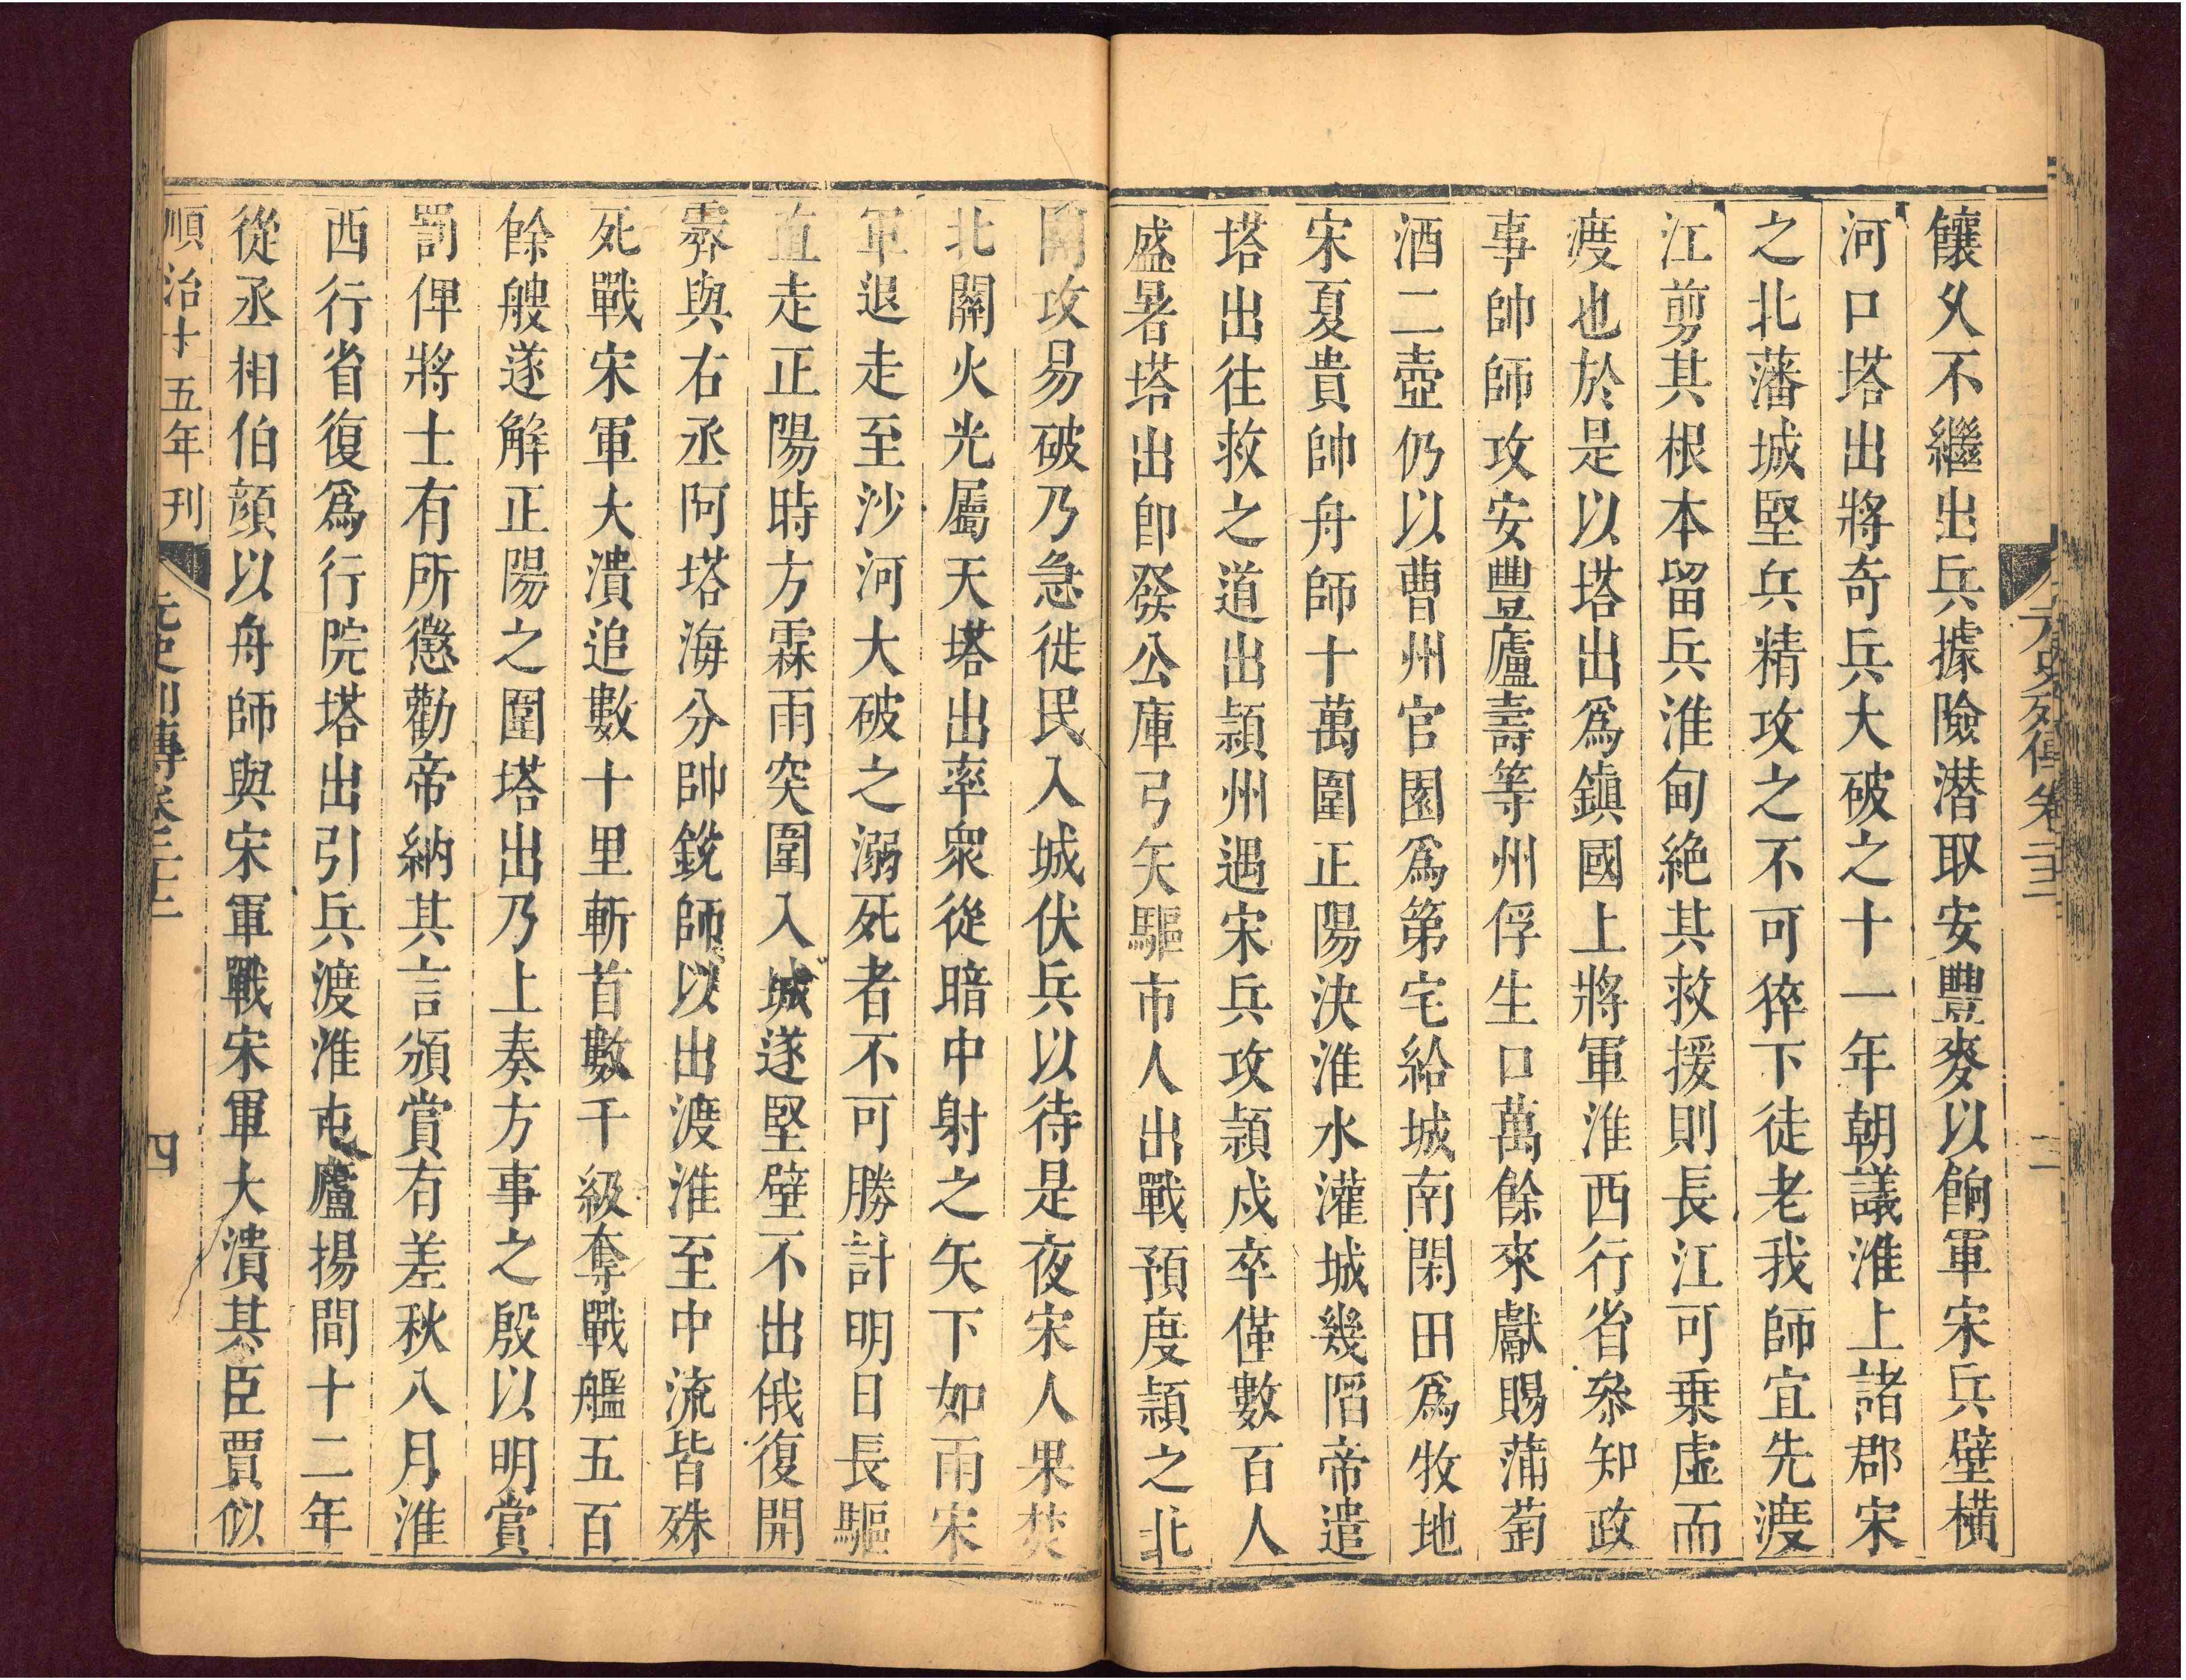 元史列傳卷二十二
二
饟久不繼出兵據險潜取安豐麥以餉軍宋兵壁橫
河口塔出將奇兵大破之十一年朝議淮上諸郡宋
之北藩城堅兵精攻之不可猝下徒老我師宜先渡
江剪其根本留兵淮甸絶其救援則長江可乗虛而
渡也於是以塔出爲鎭國上將軍淮西行省叅知政
事帥師攻安豐廬壽等州俘生口萬餘來獻賜蒲萄
酒二壺仍以曹州官園爲第宅給城南閑田爲牧地
宋夏貴帥舟師十萬圍正陽決淮水灌城幾陷帝遣
塔出往救之道出頴州遇宋兵攻頴戍卒僅數百人
盛暑塔出卽發公庫弓矢驅市人出戰預度頴之北
關攻易破乃急徙民入城伏兵以待是夜宋人果焚
北關火光屬天塔出率衆從暗中射之矢下如雨宋
軍退走至沙河大破之溺死者不可勝計明日長驅
直走正陽時方霖雨突圍入城遂堅壁不出俄復開
霽與右丞阿塔海分帥銳師以出渡淮至中流皆殊
死戰宋軍大潰追數十里斬首數千級奪戰艦五百
餘艘遂解正陽之圍塔出乃上奏方事之殷以明賞
罰俾將士有所懲勸帝納其言頒賞有差秋八月淮
西行省復爲行院塔出引兵渡淮屯廬揚間十二年
從丞相伯顔以舟師與宋軍戰宋軍大潰其臣賈似
順治十五年刊
元史列傳卷二十二
四